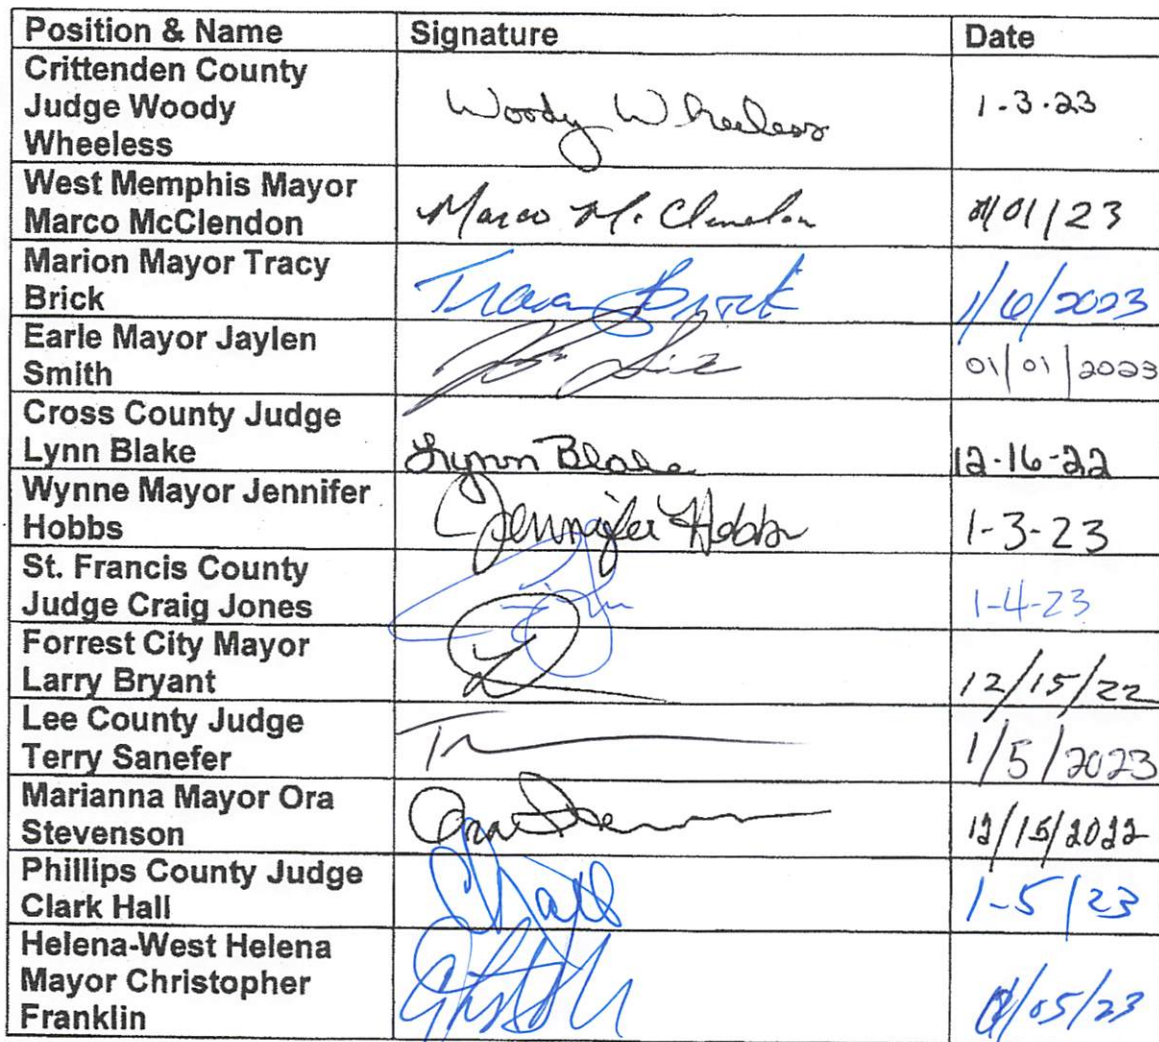 Position & Name Signature Date
Crittenden County
Judge Woody Woody Wheeless 1-3-23
Wheeless
West Memphis Mayor
Marco McClendon Marco McClendon 01/01/23
Marion Mayor Tracy
Brick Tracy Brick 1/6/2023
Earle Mayor Jaylen
Smith 01/01/2023
Cross County Judge
Lynn Blake Lynn Blake 12-16-22
Wynne Mayor Jennifer
Hobbs Jennifer Hobbs 1-3-23
St. Francis County
Judge Craig Jones 1-4-23
Forrest City Mayor
Larry Bryant 12/15/22
Lee County Judge
Terry Sanefer 1/5/2023
Marianna Mayor Ora
Stevenson 12/15/2022
Phillips County Judge
Clark Hall 1-5/23
Helena-West Helena
Mayor Christopher
Franklin /05/23